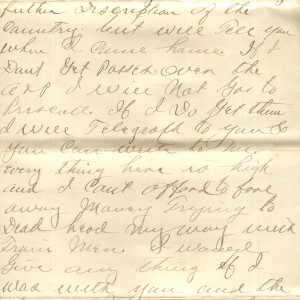 further Discription of the
Country but will Tell you
when I Come home. If I
Dont Get Passes over the
I will Not Go to
Prescott. If I Do Get them
I will Telegraph to you So
you Can write to me.
Every thing here is high
and I Cant afford to fool
away Money Trying to
Dead head my way with
Train Men. I would
Give any thing if I
was with you and the